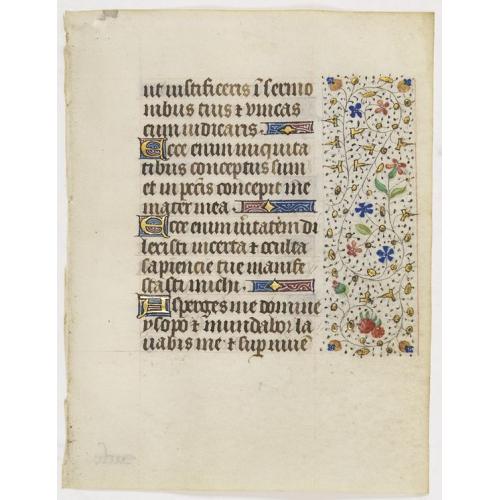 ut iustificeris ī sermo
nibus tuis ⁊ vincas
cum iudicaris.
Ecce enim iniquita
tibus conceptus sum
et in pc̄tis concepit me
mater mea.
Ecce enim v̄itatem di
lexisti incerta ⁊ oculta
sapiencie tue manife
stasti michi.
Asperges me domine
ysopo ⁊ mundabor la
uabis me ⁊ sup niuē